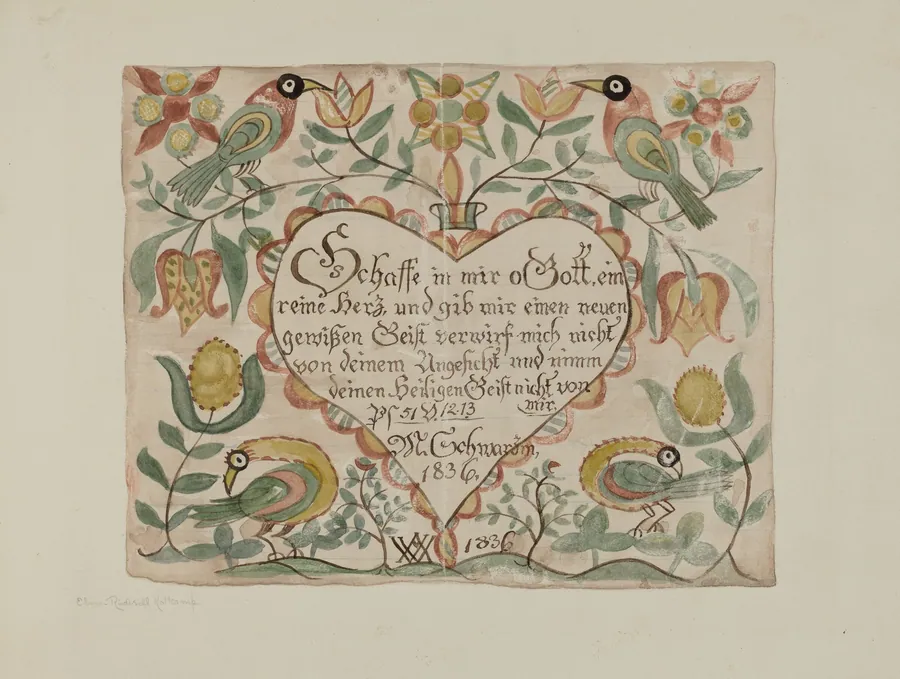 Schaffe in mir o Gott, ein
reine Herz, und gib mir einen neuen
gewißen Geist verwirf mich nicht
von deinem Angesicht und nimm
deinen Heiligen Geist nicht von
mir.
Ps 51 V. 12-13
M. Schwardin,
1836,
1836